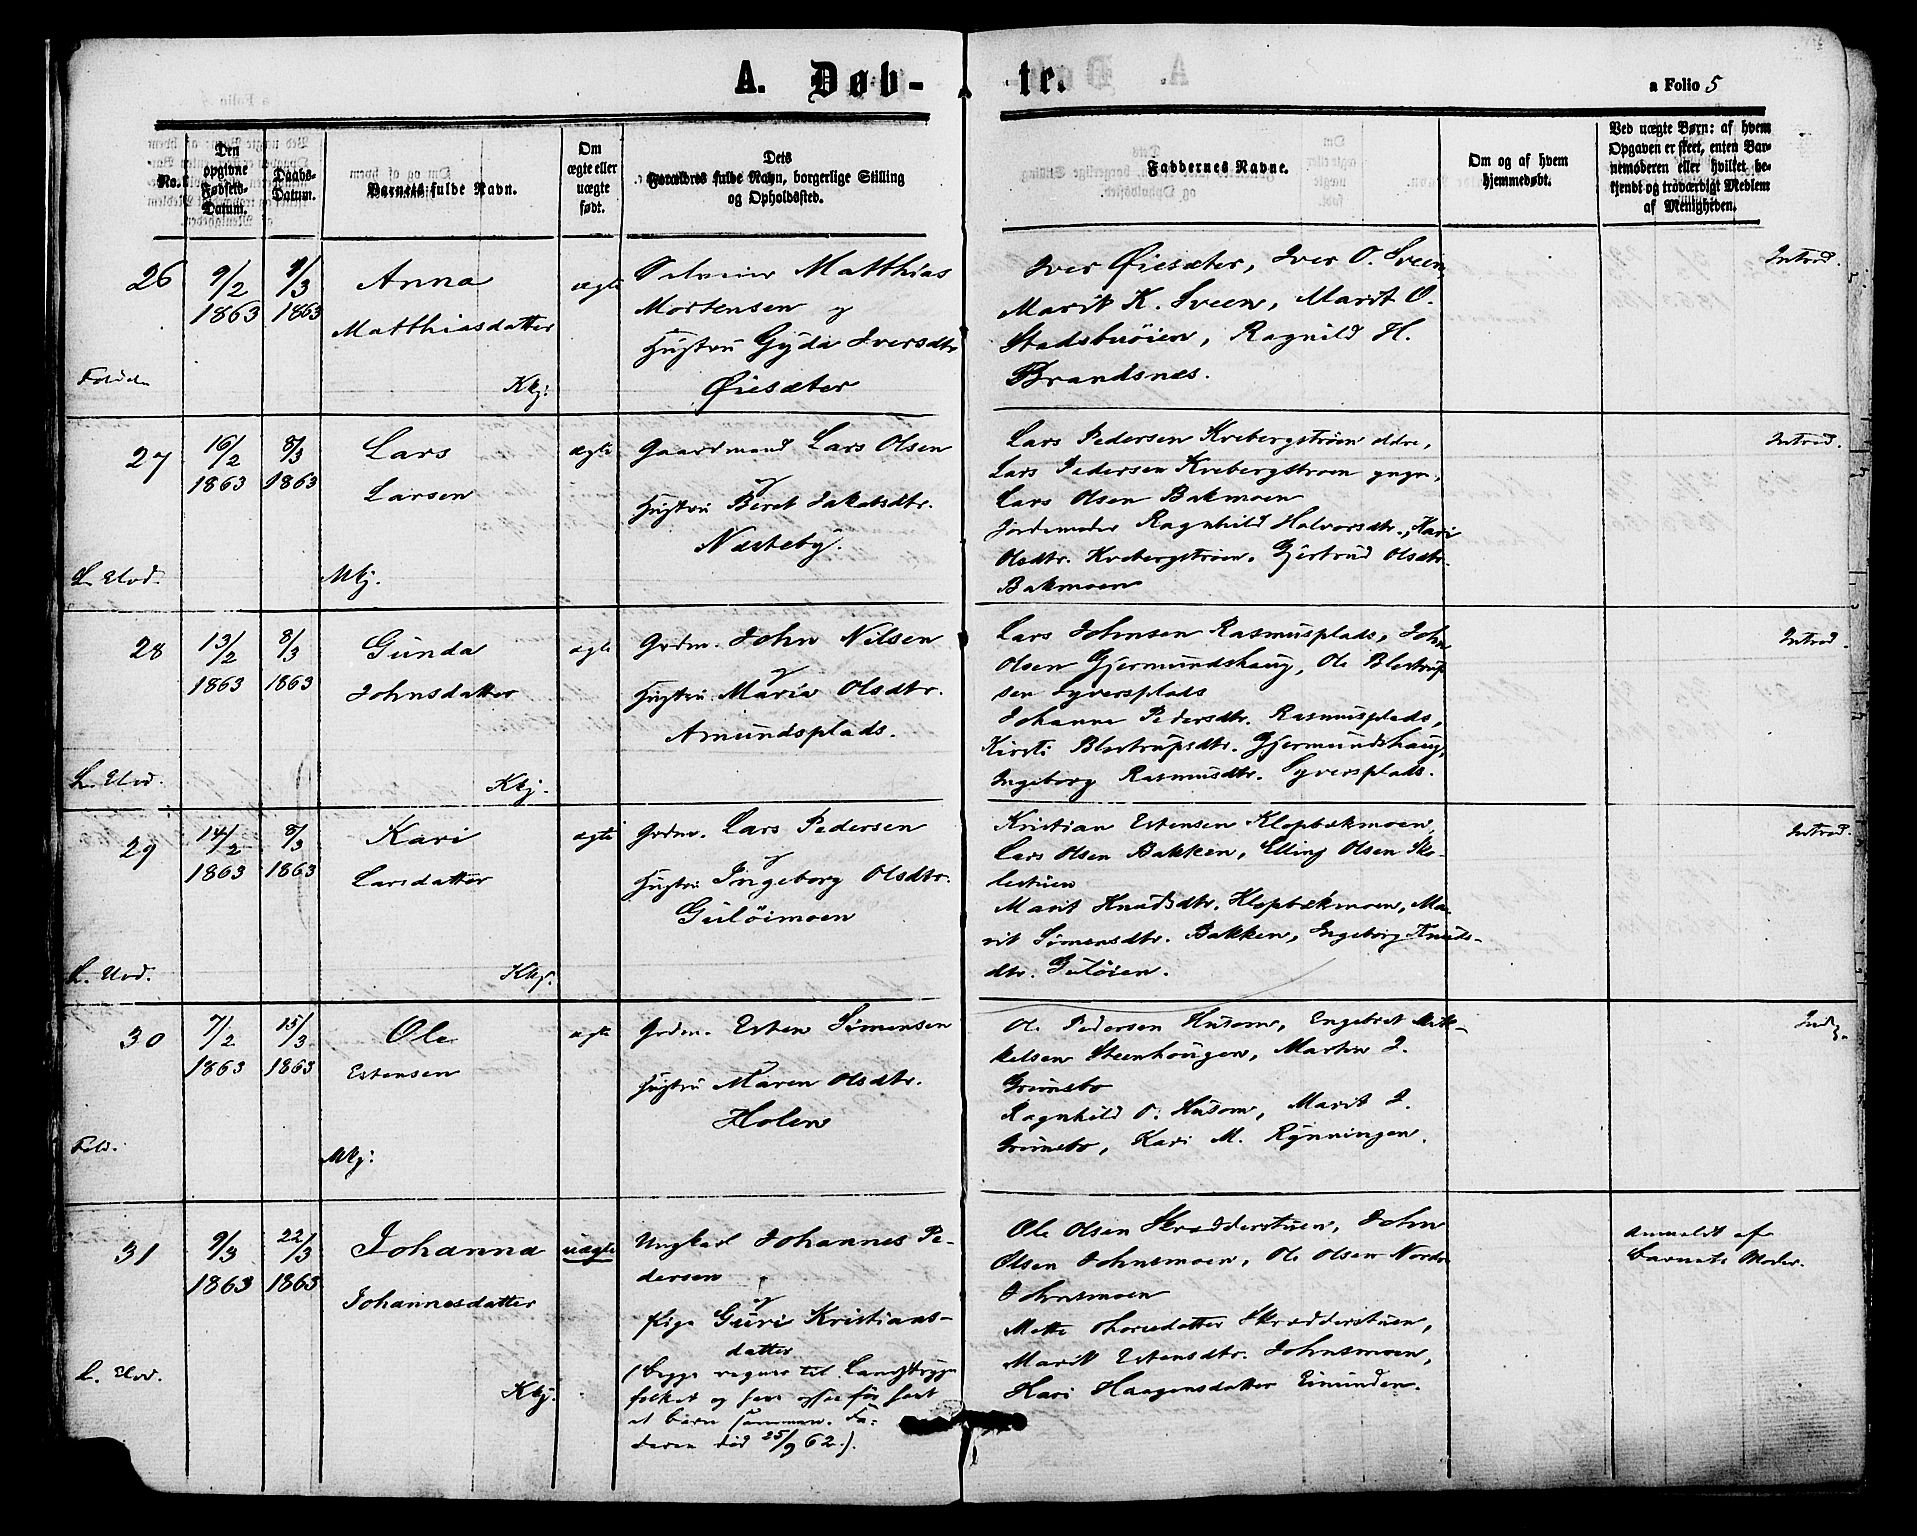 A. Døb-
te.
a Folio 5
No.
Den opgivne Fødsels-Datum.
Daabs-Datum.
Barnets fulde Navn.
Om ægte eller uægte født.
Dets Forældres fulde Navn, borgerlige Stilling og Opholdssted.
Faddernes Navne.
Om og af hvem hjemmedøbt.
Ved uægte Børn: af hvem Opgaven er skeet, enten Barnemoderen eller hvilket bekjendt og troværdigt Medlem af Menigheden.
26
9/2 1863
8/3 1863
Anna
Matthiasdatter
Kkj:
ægte
Matthias
Mortensen og
Hustru Gyda Iversdtr
Øiesæter
Iver Øiesæter, Iver O. Sveen,
Marit K. Sveen, Marit O.
Stadsbuøien, Ragnild H.
Brandsnes.
Introd.
27
16/2 1863
8/3 1863
Lars
Larsen
Mkj.
L. Elvd.
ægte
Gaardmand Lars Olsen
og
Hustru Beret Jakobsdtr.
Næsteby.
Lars Pedersen Krebergstrøen eldre,
Lars Pedersen Kvebergstrøen yngr.,
Lars Olsen Bakmoen
Jordemoder Ragnhild Halvorsdtr., Kari
Olsdtr. Kvebergstrøen, Gjertrud Olsdtr.
Bakmoen
Introd.
28
13/2 1863
8/3 1863
Gunda
Johnsdatter
Kkj.
L. Elvd.
ægte
Grdm. John Nilsen
og
Hustru Maria Olsdtr.
Amundsplads.
Lars Johnsen Rasmusplads, John
Olsen Gjermundshaug, Ole Blestrup
sen Syversplads
Johanne Pedersdtr. Rasmusplads,
Kirsti Blestrupsdtr. Gjermundshaug,
Ingeborg Rasmusdtr. Syversplads.
Introd.
29
14/2 1863
8/3 1863
Kari
Larsdatter
Kkj.
L. Elvd.
ægte
Grdm. Lars Pedersen
og
Hustru Ingeborg Olsdtr.
Guløimoen
Kristian Estensen Klopbækmoen,
Lars Olsen Bakken, Elling Olsen Sko-
lestuen
Marit Knudsdtr. Klopbækmoen, Ma-
rit Simensdtr. Bakken, Ingeborg Knuds-
dtr. Guløien.
Introd.
30
7/2 1863
15/3 1863
Ole
Estensen
Mkj:
Fold.
ægte
Grdm. Esten Simensen
og
Hustru Maren Olsdtr.
Holen
Ole Pedersen Husom, Engebret Mik-
kelsen Steenhougen, Martin J.
Grimsbo
Ragnhild O. Husom, Marit J.
Grimsbo, Kari M. Rynningen.
31
9/3 1863
22/3 1863
Johanna
Johannesdatter
Kkj.
L. Elvd.
uægte
Ungkarl Johannes Pe-
dersen
og
Pige Guri Kristians-
datter
(begge regnes til Landstryger
folket og have ogsaa før havt
et barn sammen. Fa-
deren død 25/9 62.).
Ole Olsen Skrædderstuen, John
Olsen Johnsmoen, Ole Olsen Nordre
Johnsmoen
Mette Thoresdatter Skrædderstuen,
Marit Estensdtr. Johnsmoen,
Kari Haagensdatter Eimunden.
Anmeldt af
Barnets Moder.